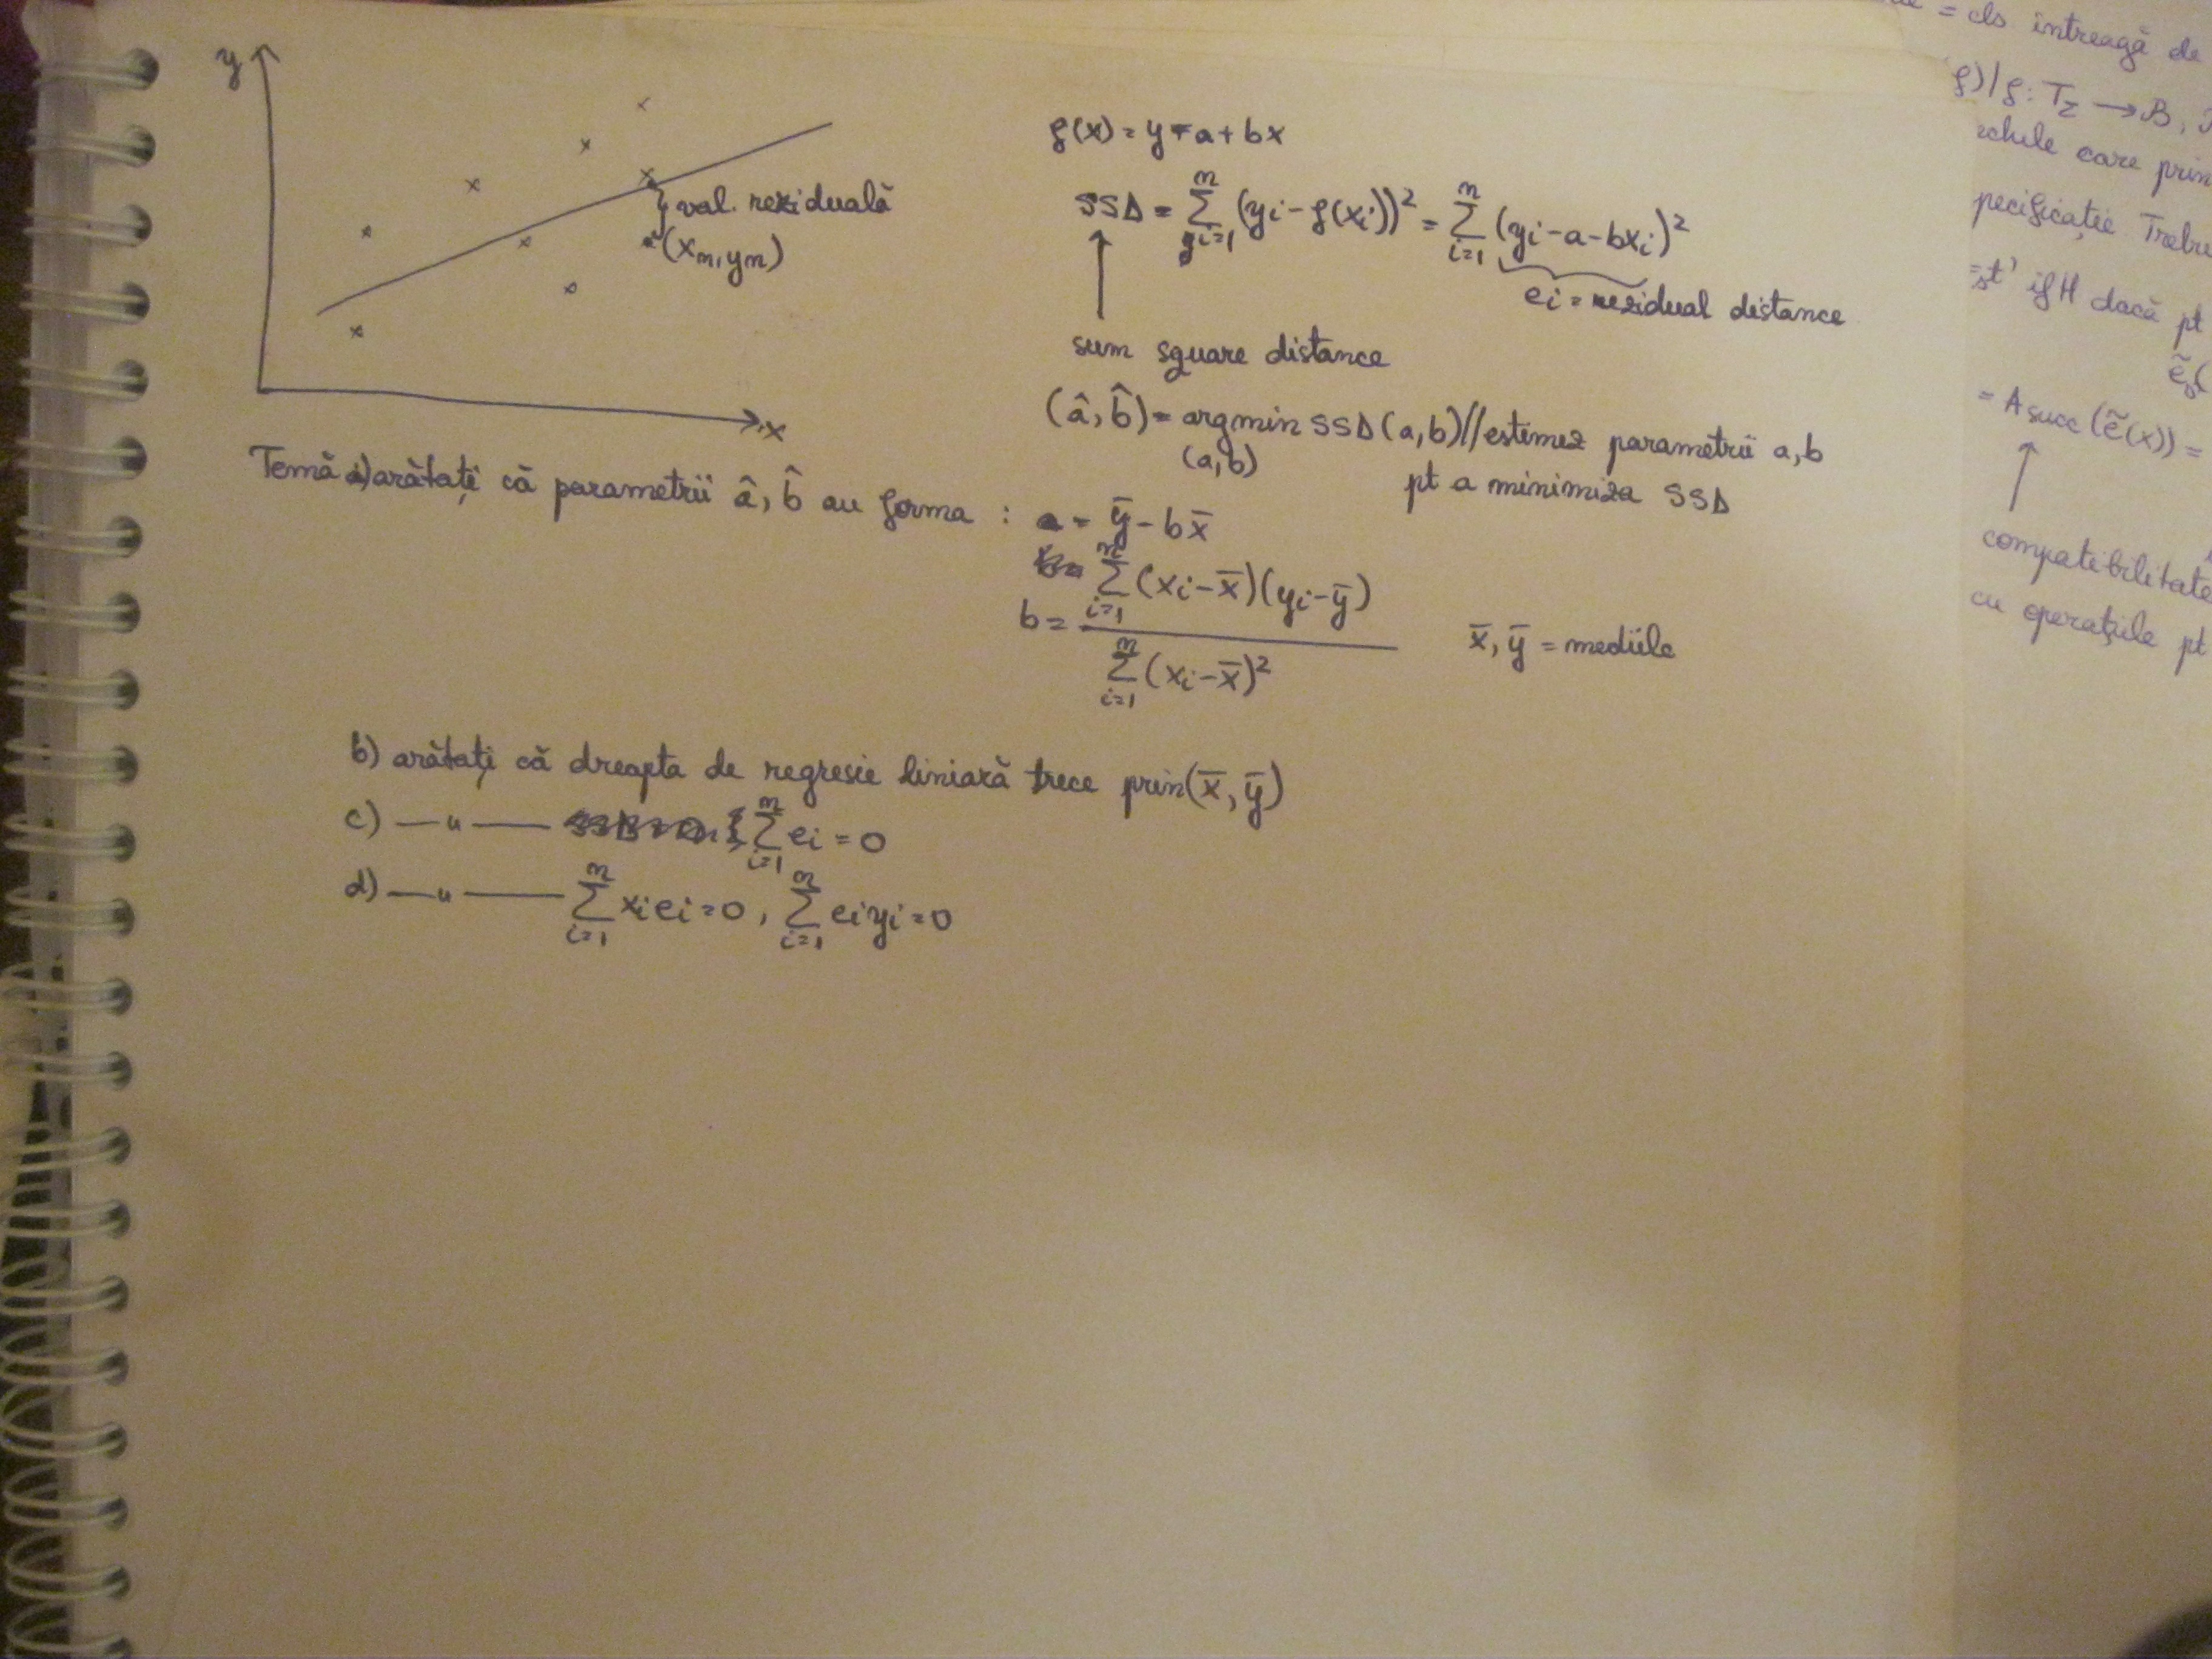 y
x
val. reziduală
(xn, yn)
f(x) = y = a + bx
SSD = Σ_{i=1}^{n} (yi - f(xi))² = Σ_{i=1}^{n} (yi - a - bxi)²
ei = rezidual distance
sum square distance
(â, b̂) = argmin SSD (a,b) // estimez parametrii a,b
(a,b) pt a minimiza SSD
Temă a) arătați că parametrii â, b̂ au forma : a = ȳ - bx̄
b = Σ_{i=1}^{n} (xi - x̄)(yi - ȳ)
Σ_{i=1}^{n} (xi - x̄)²
x̄, ȳ = mediile
b) arătați că dreapta de regresie liniară trece prin (x̄, ȳ)
c) —„— Σ_{i=1}^{n} ei = 0
d) —„— Σ_{i=1}^{n} xi ei = 0 , Σ_{i=1}^{n} ei yi = 0
= cls întreagă de
f) | f: TΣ → B,
care prin
Trebu
iff H dacă pt
= Asucc (ẽ(x)) =
compatibilitate
cu operațiile pt